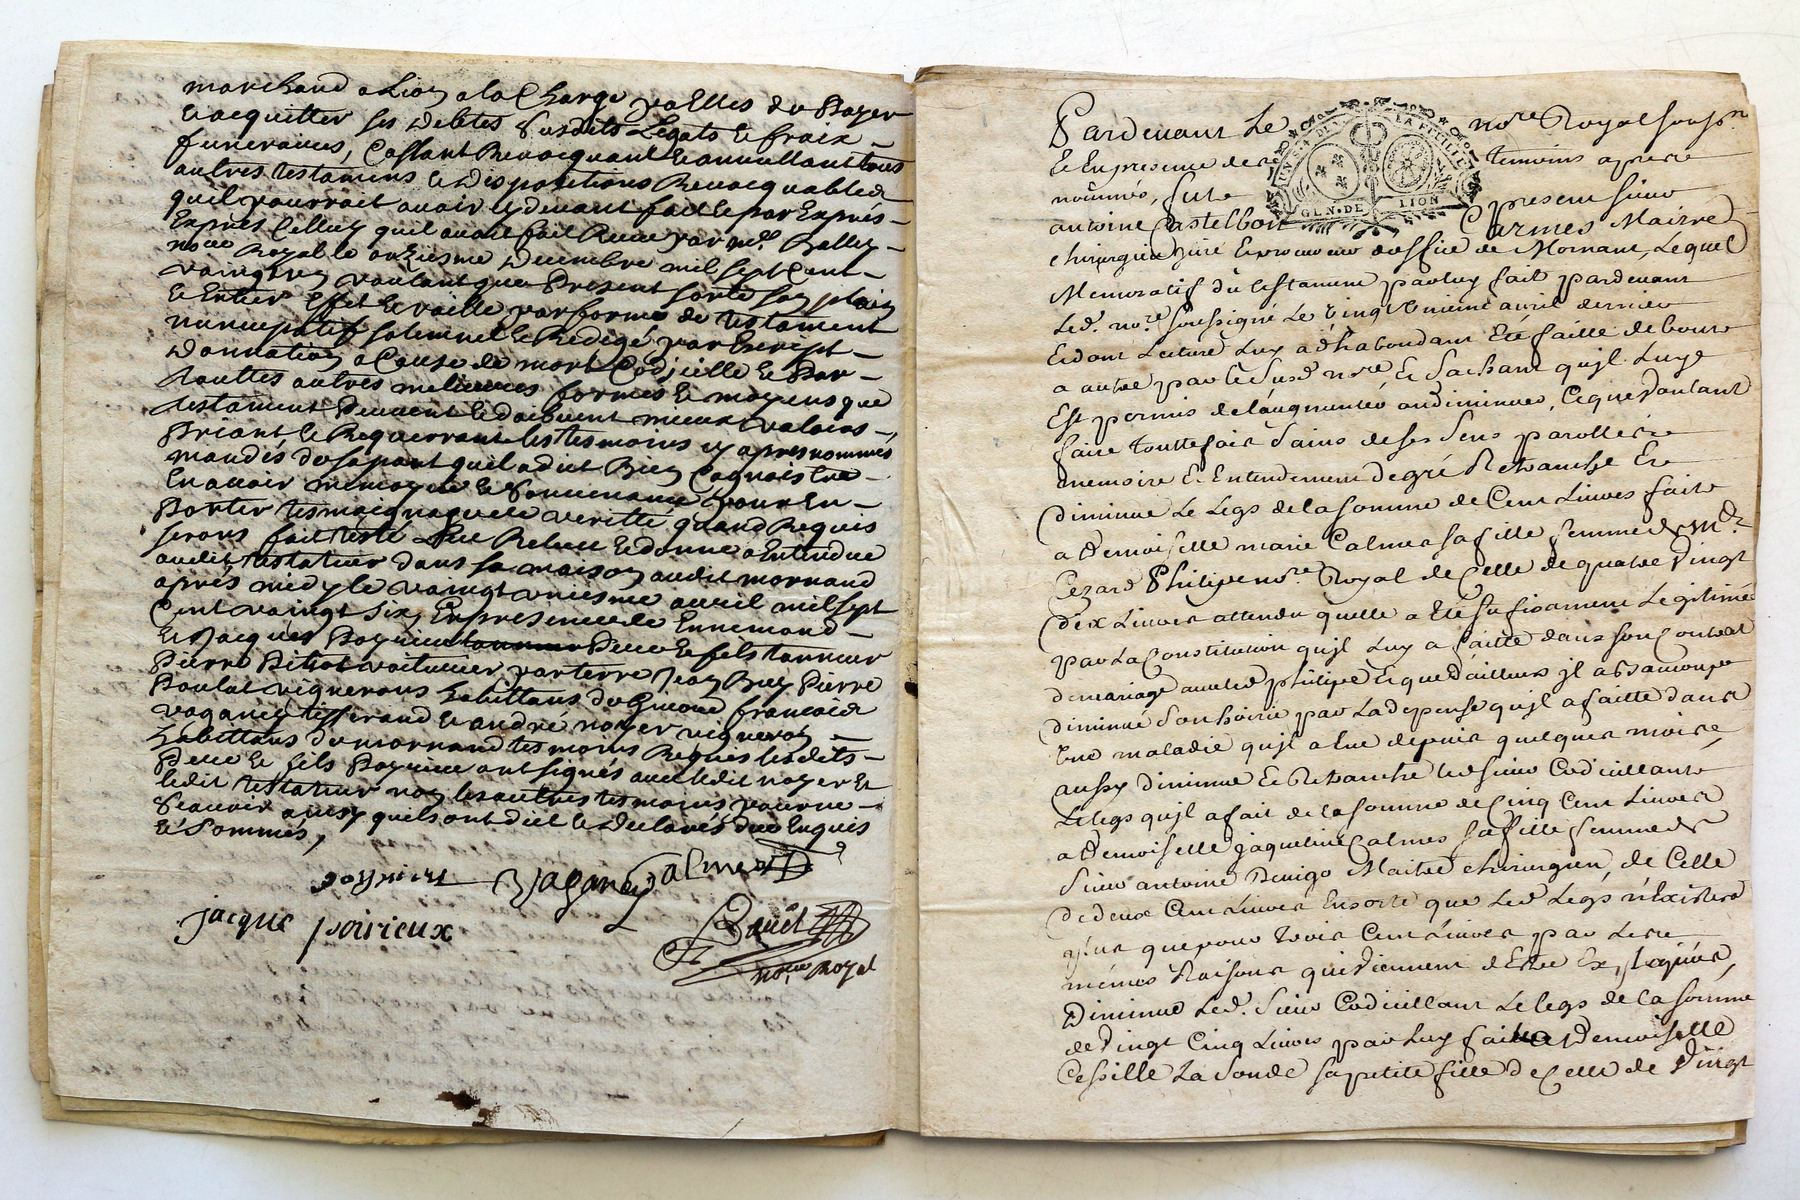 marchand a Lion a la Charge par Elles de Payer
& acquitter ses debtes susdits Legats & fraix
funeraires, Cassant Revocquant & annullant tous
autres testamens & dispositions Revocquables
quil pourroit avoir cy devant fait & par Exprés
Expres Celluy quil avoit fait Receu par mᵉ
noᵉʳᵉ Royal le onziesme decembre mil sept Cent
vaingt trois, voulant que Present sorte son plain
& Entier Effet & vaille par forme de testament
nuncupatif solemnel & Redigé par Escript
donnation a Cause de mort Codicille & Par
touttes autres meilleures formes & moyens que
testament Peuvent & doibvent mieux valoir
Priant & Requerrant les tesmoins cy apres nommés
mandés de sa part quil a dict Bien Cognoistre
En avoir memoyre & souvenance Pour En
Porter tesmoignage de veritté quand Requis
seront fait leu Releu & donné a Entendre
audit testateur dans sa maison audit mornand
apres midy le vaingt uniesme avril mil sept
Cent vaingt six, En presence de Ennemond
& Jacques Poyrieu Pere & fils tanneur
Pierre Pitiot voiturier par terre Jean Buy Pierre
Poulat vignerons habittans de francois
vaganey tisserand & andré noyer vigneron
habittans du mornand tesmoins Requis lesdits
Pere & fils Poyrieu ont signés avec ledit noyer &
ledit testateur non les autres tesmoins pour ne
sçavoir ainsy quils ont dict & declarés de ce Enquis
& Sommés,
poyrieux Vaganey Calmer
jacque poirieux
noᵉʳᵉ Royal
Pardevant Le noʳᵉ Royal soussⁿᵉ
& En presence des temoins apres
nommés, fut present sieur
antoine Castelbon Carmes Maitre
chirurgien juré & d'office de Mornant, Lequel
Memoratif du testament par luy fait pardevant
Led. noʳᵉ soussigné Le vingt unieme avril dernier
Et dont Lecture Luy a d'habondant Eté faitte de bout
a autre par le susd. noʳᵉ, & sachant qu'jl Luy
Est permis de l'augmenter ou diminuer, Ce que voulant
faire touttefois sains de ses sens parolle
memoire & Entendement de gré Retranche Et
diminue Le Legs de la somme de Cent Livres faite
a Demoiselle marie Calmer sa fille femme de Mʳ
Cezard Philipe noʳᵉ Royal de Celle de quatre vingt
dix Livres attendu quelle a Eté sufisament Legitimée
par La Constitution qu'jl Luy a faitte dans son Contrat
de mariage avec led. philipe Et que d'ailleurs jl a beaucoup
diminué son hoirie par La depense qu'jl a faitte dans
Une maladie qu'jl a Eue depuis quelques mois,
aussy diminue & Retranche led. sieur Codicillant
Le legs qu'jl a fait de la somme de Cinq Cent Livres
a Demoiselle jaqueline Calmes sa fille femme de
sieur antoine Maitre chirurgien, de Celle
de deux Cent Livres En sorte que Led. Legs n'Existera
plus que pour trois Cent Livres par Les
mémes Raisons qui viennent d'Etre Expliquées,
Diminue Led. sieur Codicillant Le legs de la somme
de vingt Cinq Livres par Luy fait a Demoiselle
Cessille La sonde sa petite fille de Celle de vingt
GEN. DE LION